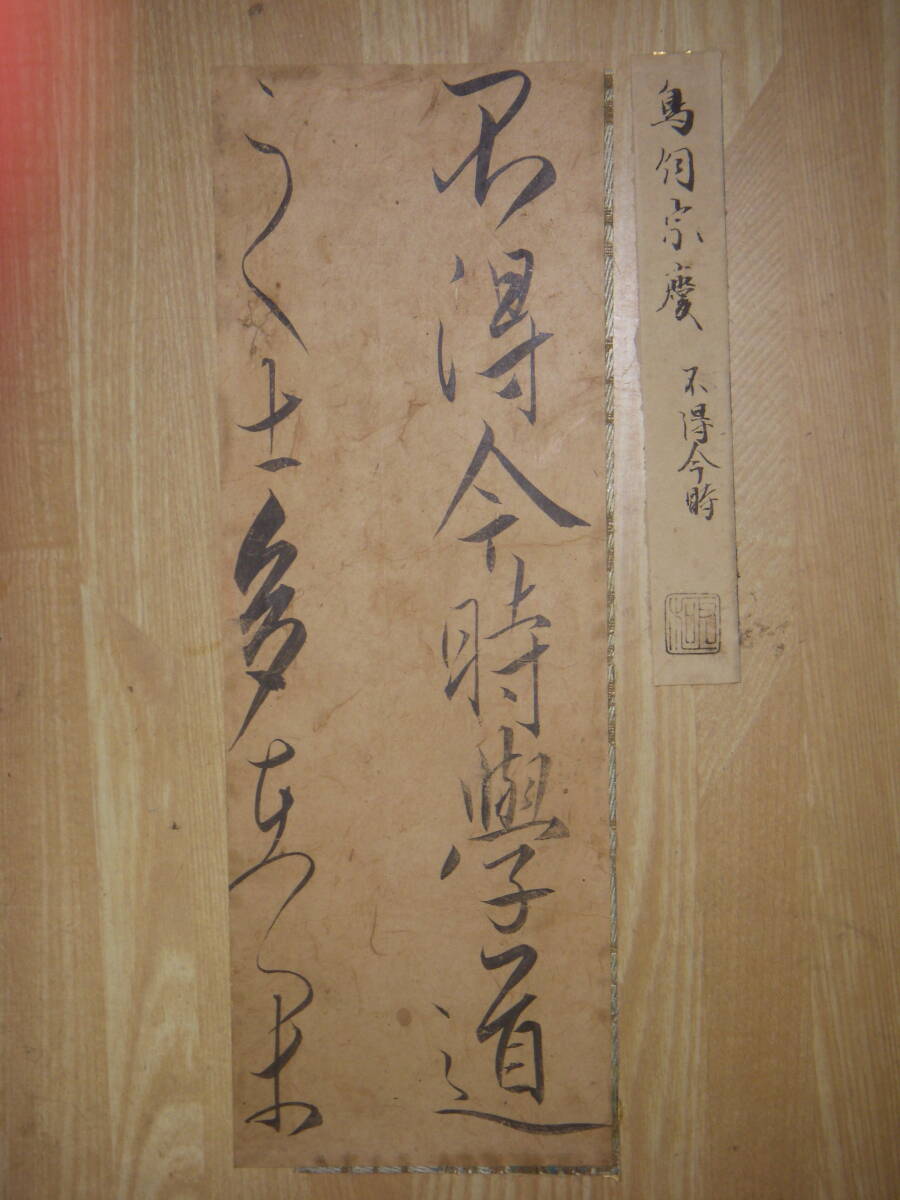 烏伺宗慶 不得今時
不得今時學道
之士多